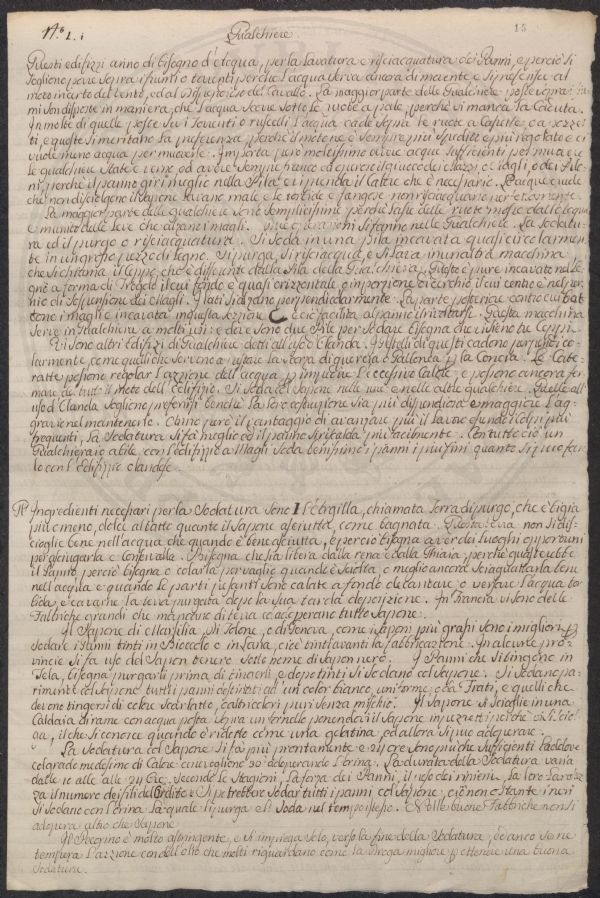 N.° 1. i
Qualchiere
15
Questi edifizi anno di bisogno d'Acqua, per la Lavatura e risciacquatura dei Panni, e perciò si
sogliono porre sopra i fiumi o torrenti perche l'acqua serva ancora di movente e si preferisce al
moto incerto del vento, ed al dispendioso del Cavallo. La maggior parte delle Gualchiere poste sopra i fiu
mi son disposte in maniera, che l'acqua scorre sotto le ruote a pale, perchè vi manca la Caduta.
In molte di quelle poste su i torrenti o ruscelli l'acqua cade sopra le ruote a Cassette, o a pozzet
ti, e queste si meritano la preferenza perchè il moto ne è sempre più spedito e più regolato e ci
vuole meno acqua per muoverle. Importa però moltissimo avere acque sufficienti per muovere
le qualchiere State e verno, ed avere sempre franco ed aperto il giuoco dei Mazzi, o Magli, o dei Pilo
ni, perchè il panno giri meglio nella Pila e ci prenda il Calore che è necessario. Le acque crude
che non disciolgono il Sapone lavano male e le torbide e fangose non risciacquano perfettamente.
La maggior parte delle qualchiere sono semplicissime perchè basta delle ruote mosse dall'acqua
e munite delle leve che alzano i magli. Due operazioni si fanno nelle Gualchiere. La Sodatu
ra ed il purgo o risciacquatura. Si Soda in una Pila incavata quasi circolarmen
te in un grosso pezzo di legno. Si purga, si risciacqua, e si lava in un'altra macchina
che si chiama il Ceppo, che è differente dalla Pila della Gualchiera. Questo è pure incavato nel Le
gno a forma di Trogolo il cui fondo è quasi orizzontale, o in porzione di cerchio il cui centro è nel pun
to di sospensione dei Magli. I lati si alzano perpendicolarmente. La parte posteriore contro cui bat
tono i magli è incavata in questa sezione C e ciò facilita al panno il rivoltarsi. Questa macchina
serve in Gualchiera a molti usi: e dove sono due Pile per Sodare bisogna che vi sieno tre Ceppi.
Vi sono altri Edifizi di Gualchiere detti all'uso d'Olanda. I Pestelli di questi cadono perpendico
larmente, come quelli che servono a pestare la scorza di quercia e Gallonea p la Concia. Le Cate-
ratte possono regolar l'azzione dell'acqua p impedire l'eccessivo Calore, e possono ancora fer
mare da tutt'il moto dell'edifizio. Si Soda col Sapone nelle une e nelle altre gualchiere. Quelle all'
uso d'Olanda sogliono preferirsi benchè la loro costruzione sia più dispendiosa e maggiore l'ag-
gravio nel mantenerle. Anno però il vantaggio di avanzare più il lavoro essendo i Colpi più
frequenti, la Sodatura si fa meglio ed il panno si riscalda più facilmente. Con tutto ciò un
Gualchieraio abile con l'edifizio a Magli Soda benissimo i panni i più fini quanto si può far
lo con l'Edifizio olandese.
Ingredienti necessari per la Sodatura sono 1 L'Argilla, chiamata Terra di purgo, che è bigia
più o meno, dolce al tatto quanto il Sapone asciutta, come bagnata. Questa terra non si dis-
cioglie bene nell'acqua che quando è bene asciutta, e perciò bisogna aver dei luoghi opportuni
per asciugarla e conservarla. Bisogna che sia libera dalla rena e dalla Ghiaia, perchè guasterebbe
il Panno, perciò bisogna o colarla per vaglio quando è sciolta, o meglio ancora sciaguattarla bene
nell'acqua e quando le parti pesanti sono calate a fondo decantare o versare l'acqua tor
bida, e cavarne la terra purgata dopo la sua tarda deposizione. In Francia vi sono delle
Fabbriche grandi che mancano di terra ed adoperano tutto Sapone.
Il Sapone di Marsilia, di Tolone, o di Genova, come saponi più grassi sono i migliori p
Sodare i Panni tinti in Bioccolo o in Lana, cioè tinti avanti la fabbricazione. In alcune pro-
vincie si fa uso del Sapon tenero sotto nome di Sapon nero. I Panni che si tingono in
Tela, bisogna purgarli prima di tingerli, e dopo tinti si Sodano col Sapone. Si Sodano pa-
rimente col Sapone tutti i panni destinati ad un color bianco, uniforme, o da Frati, e quelli che
devono tingersi di color Scarlatto, ed altri colori puri senza mischio. Il Sapone si scioglie in una
Caldaia di rame con acqua posta sopra un fornello ponendovi il Sapone in pezzetti perchè vi si sciol-
ga, il che si conosce quando è ridotto come una gelatina, ed allora si può adoperare.
La Sodatura col Sapone si fa più prontamente e 24 ore sono più che sufficienti laddove
col grado medesimo di Calore ce ne vogliono 30 adoperando l'orina. La durata della Sodatura varia
dalle 10 alle alle 24 Ore. Secondo le Stagioni, la forza dei Panni, il uso dei ripieni, la loro Larghez
za il numero dei fili dell'Ordito. Si potrebbe Sodar tutti i panni col Sapone, ciò non ostante i neri
si Sodano con l'orina la quale li purga e li Soda nel tempo stesso. Nelle buone Fabbriche non si
adopera altro che Sapone.
Il Pecorino è molto astringente, e si impiega solo, verso la fine della Sodatura, ed anco se ne
tempera l'azzione con dell'olio che molti riguardano come la Droga migliore p ottenere una buona
Sodatura.